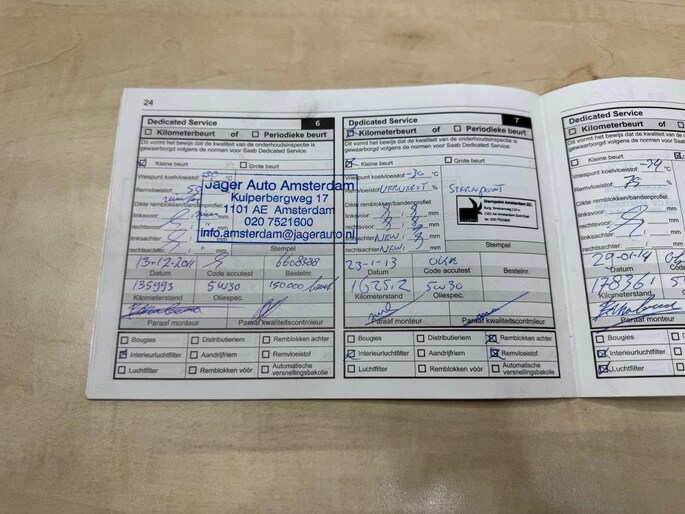 24
Dedicated Service 6
Kilometerbeurt of Periodieke beurt
Dit vormt het bewijs dat de kwaliteit van de onderhoudsinspectie is
gewaarborgd volgens de normen voor Saab Dedicated Service.
Kleine beurt Grote beurt
Vriespunt koelvloeistof: -30 °C
Remvloeistof: 50
Jager Auto Amsterdam
Kuiperbergweg 17
1101 AE Amsterdam
020 7521600
info.amsterdam@jagerauto.nl
Dikte remblokken/bandenprofiel:
linksvoor:
rechtsvoor:
linksachter:
rechtsachter: mm
Stempel
13-12-2011
Datum Code accutest Bestelnr.
135993 5W30 150.000 beurt
Kilometerstand Oliespec.
Paraaf monteur Paraaf kwaliteitscontroleur
Bougies Distributieriem Remblokken achter
Interieurluchtfilter Aandrijfriem Remvloeistof
Luchtfilter Remblokken vóór Automatische
versnellingsbakolie
Dedicated Service 7
Kilometerbeurt of Periodieke beurt
Dit vormt het bewijs dat de kwaliteit van de onderhoudsinspectie is
gewaarborgd volgens de normen voor Saab Dedicated Service.
Kleine beurt Grote beurt
Vriespunt koelvloeistof: -36 °C
Remvloeistof: VERVERST % STERNPOINT
Dikte remblokken/bandenprofiel:
linksvoor: 8 , 8 mm
rechtsvoor: 8 , 8 mm
linksachter: NEW , mm
rechtsachter: NEW , mm
Stempel
23-1-13
Datum Code accutest Bestelnr.
162512 5W30
Kilometerstand Oliespec.
Paraaf monteur Paraaf kwaliteitscontroleur
Bougies Distributieriem Remblokken achter
Interieurluchtfilter Aandrijfriem Remvloeistof
Luchtfilter Remblokken vóór Automatische
versnellingsbakolie
Dedicated Service
Kilometerbeurt
Dit vormt het bewijs dat de kwaliteit
gewaarborgd volgens de normen
Kleine beurt
Vriespunt koelvloeistof: -34
Remvloeistof: 75
Dikte remblokken/bandenprofiel:
linksvoor:
rechtsvoor:
linksachter:
rechtsachter:
29-01-14
Datum
178361
Kilometerstand
Paraaf monteur
Bougies
Interieurluchtfilter
Luchtfilter